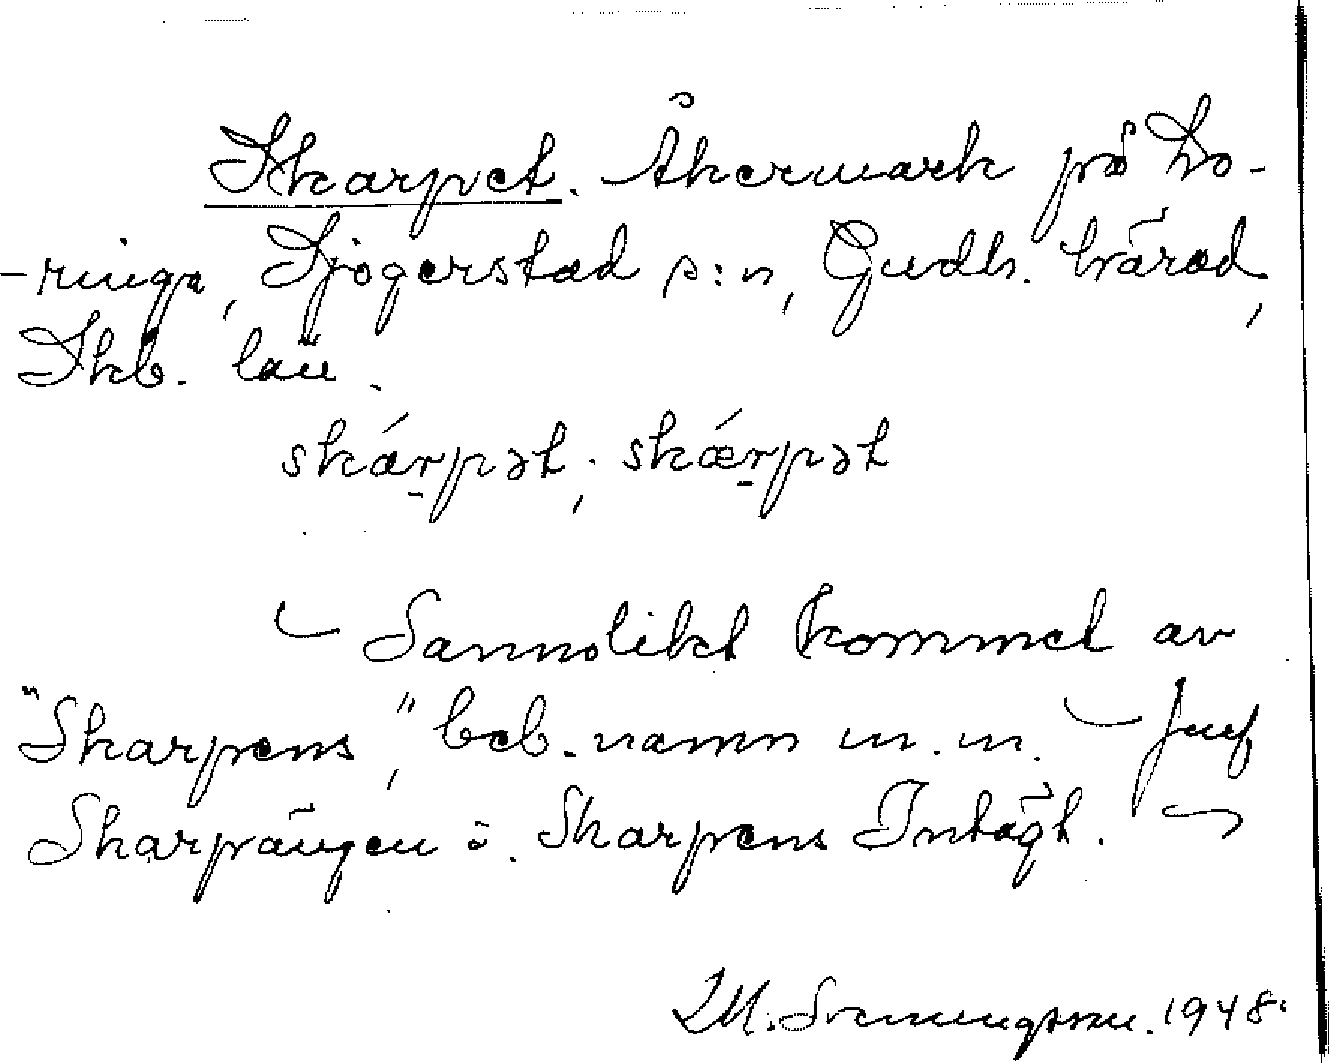 Skarpet. Åkermark på Lo-
-ringa, Sjögerstad s:n, Gudh. härad,
Skb. län.
skárpət, skǽrpət
Sannolikt kommet av
"Skarpens," beb.namn m.m. Jmf
Skarpängen o. Skarpens Intägt.
M. Svenungsson. 1948.